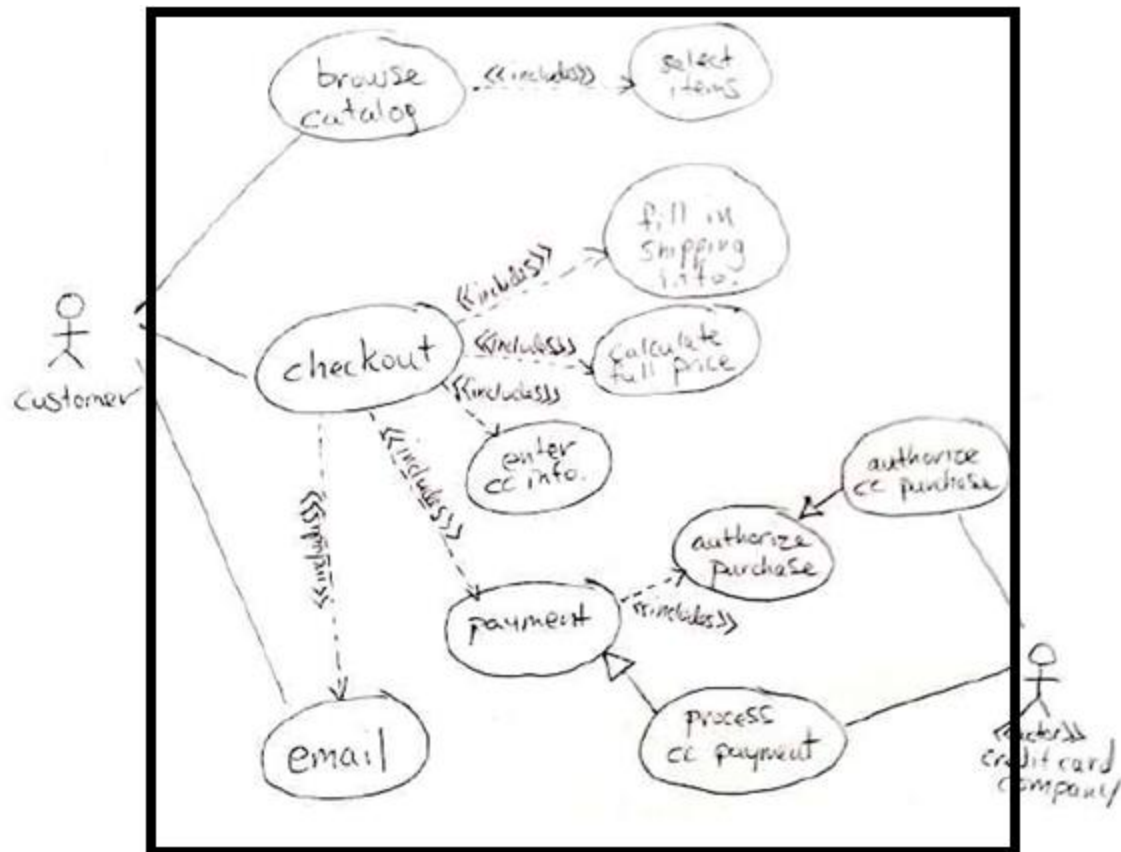 browse
catalog
<<includes>>
select
items
fill in
shipping
info.
<<includes>>
customer
checkout
<<includes>>
calculate
full price
<<includes>>
enter
cc info.
<<includes>>
<<includes>>
authorize
cc purchase
authorize
purchase
payment
<<includes>>
email
process
cc payment
<<actor>>
credit card
company